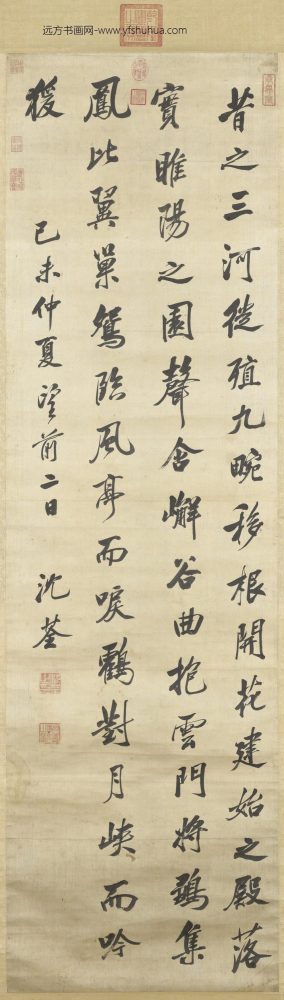 远方书画网-www.yfshuhua.com
昔之三河徙殖九畹移根開花建始之殿落
實睢陽之園聲含嶰谷曲抱雲門將鶵集
鳳比翼巢鴛臨風亭而唳鶴對月峽而吟
猨
己未仲夏望前二日 沈荃